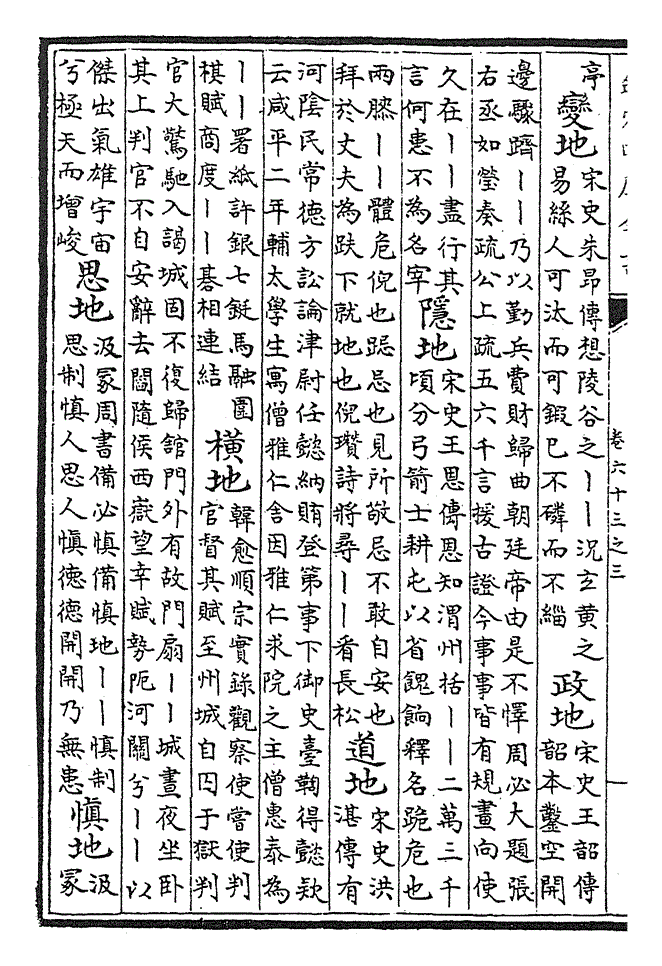 卷六十三之三
亭
變地
宋史朱昂傳想陵谷之丨丨况玄黃之
易絲人可汰而可鍜巳不磷而不緇
政地
宋史王韶傳
韶本鑿空開
邊驟躋丨丨乃以勤兵費財歸曲朝廷帝由是不懌周必大題張
右丞如瑩奏疏公上疏五六千言援古證今事事皆有規畫向使
久在丨丨盡行其
言何患不為名宰
隱地
宋史王恩傳恩知渭州括丨丨二萬三千
頃分弓箭士耕屯以省餽餉釋名跪危也
兩膝丨丨體危倪也跽忌也見所敬忌不敢自安也
拜於丈夫為趺下就地也倪瓚詩將尋丨丨看長松
道地
宋史洪
湛傳有
河陰民常德方訟論津尉任懿納賄登第事下御史臺鞫得懿欵
云咸平二年輔太學生寓僧雅仁舍因雅仁求院之主僧惠泰為
丨丨署紙許銀七鋌馬融圍
棋賦商度丨丨碁相連結
橫地
韓愈順宗實錄觀察使嘗使判
官督其賦至州城自囚于獄判
官大驚馳入謁城固不復歸館門外有故門扇丨丨城晝夜坐卧
其上判官不自安辭去閻隨侯西嶽望幸賦勢阨河關兮丨丨以
傑出氣雄宇宙
兮極天而增峻
思地
汲冢周書備必慎備慎地丨丨慎制
思制慎人思人慎德德開開乃無患
慎地
汲
冢